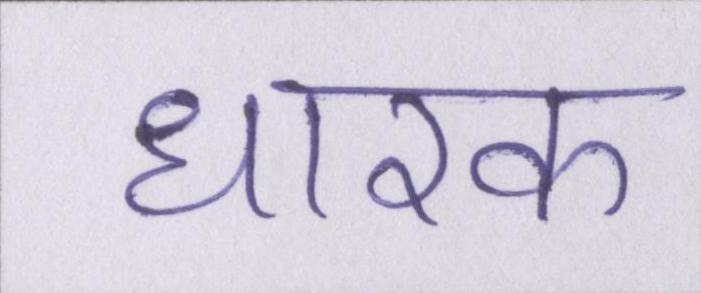 धारक